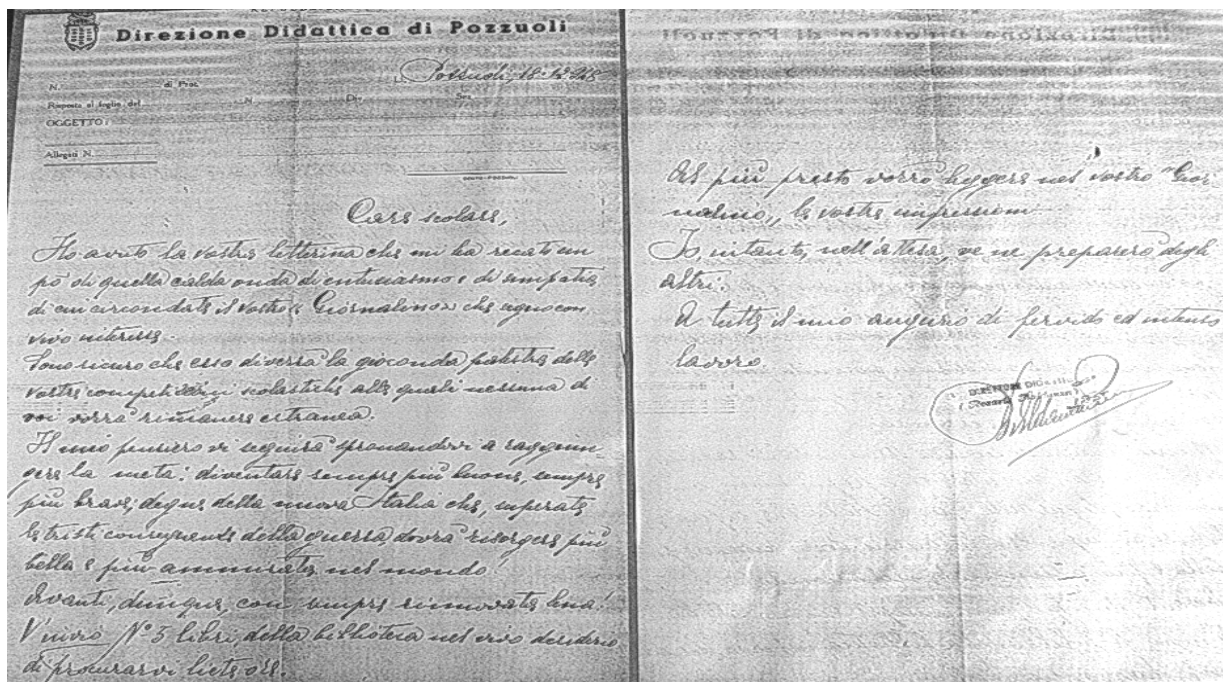 Direzione Didattica di Pozzuoli
Pozzuoli, 18-12-948
N. di Prot.
Risposta al foglio del N. Div. Sez.
OGGETTO:
Allegati N.
Care scolare,
Ho avuto la vostra letterina che mi ha recato un
pò di quella calda onda di entusiasmo e di simpatia
di cui circondate il vostro "Giornalino" che seguo con
vivo interesse.
Sono sicuro che esso diverrà la gioconda palestra delle
vostre competizioni scolastiche alle quali nessuna di
voi vorrà rimanere estranea.
Il mio pensiero vi seguirà spronandovi a raggiun-
gere la meta: diventare sempre più buone, sempre
più brave, degne della nuova Italia che, superate
le tristi conseguenze della guerra, dovrà risorgere più
bella e più ammirata nel mondo!
Avanti, dunque, con sempre rinnovata lena!
V'invio N° 5 libri della biblioteca nel vivo desiderio
di procurarvi liete ore.
Al più presto vorrò leggere nel vostro "Gior-
nalino" le vostre impressioni
Io, intanto, nell'attesa, ve ne preparerò degli
altri.
A tutte il mio augurio di fervido ed intenso
lavoro
DIRETTORE DIDATTICO